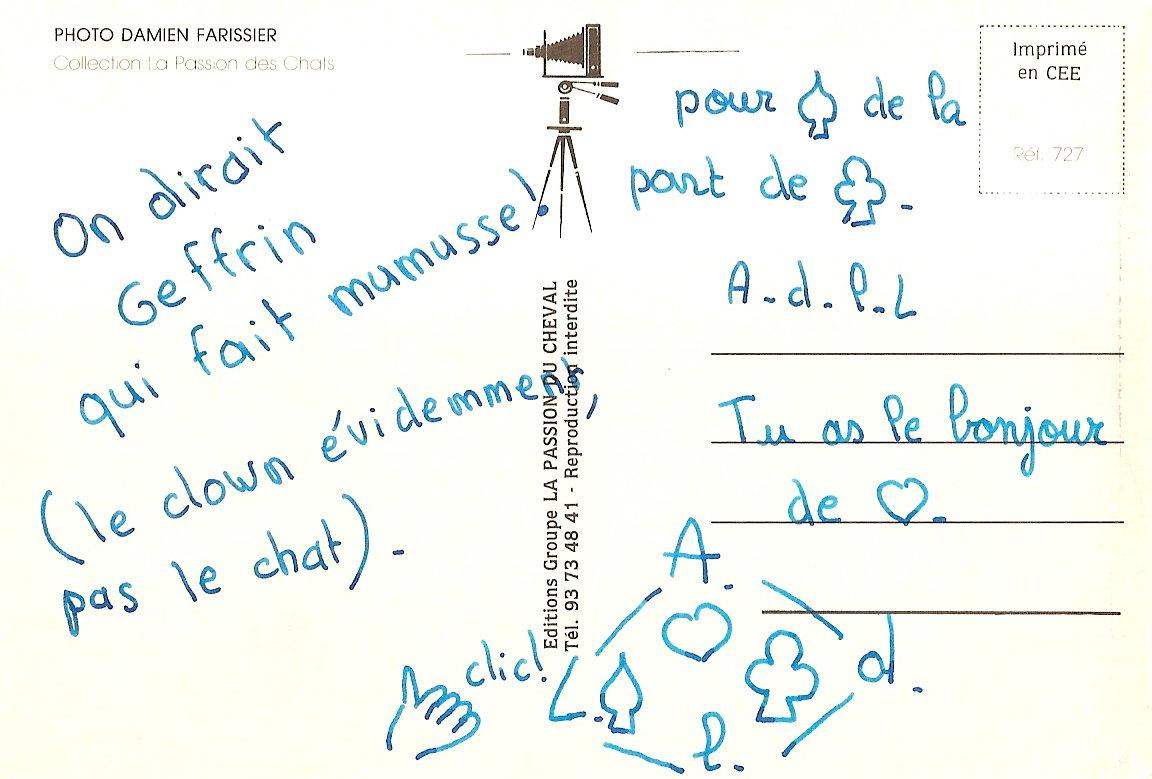 PHOTO DAMIEN FARISSIER
Collection La Passion des Chats
On dirait
Geffrin
qui fait mumusse!
(le clown évidemment,
pas le chat).
clic!
Editions Groupe LA PASSION DU CHEVAL
Tél. 93 73 48 41 - Reproduction interdite
Imprimé
en CEE
Réf. 727
pour ♤ de la
part de ♧.
A.d.l.L
Tu as le bonjour
de ♡.
A.
d.
l.
L.